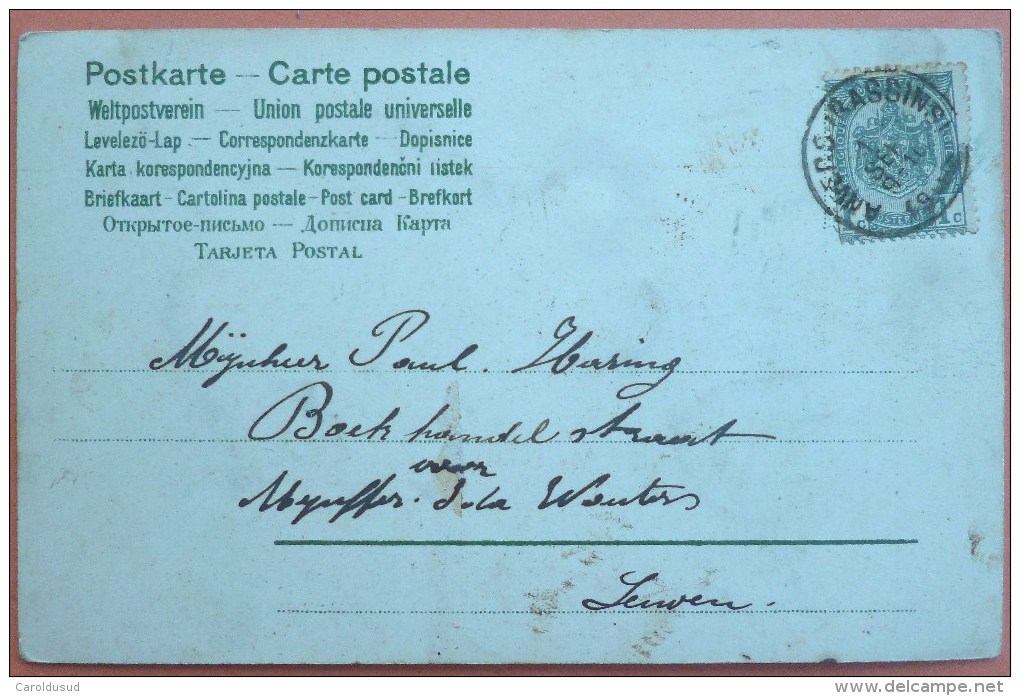 Postkarte — Carte postale
Weltpostverein — Union postale universelle
Levelezö-Lap — Correspondenzkarte — Dopisnice
Karta korespondencyjna — Korespondenčni listek
Briefkaart - Cartolina postale - Post card - Brefkort
Открытое-письмо — Дописна Карта
TARJETA POSTAL
ANVERS (BASSINS)
1 c
Mÿnheer Paul. Haring
Boekhandel straat
voor
Ida Wouters
Leuven.
Caroldusud
www.delcampe.net